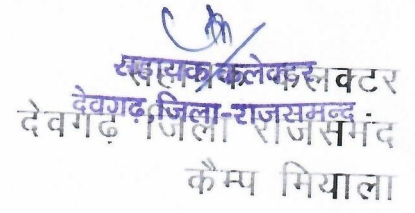 सहायक कलेक्टर
देवगढ़ जिला-राजसमन्द
सहायक कलक्टर
देवगढ़ जिला राजसमंद
कैम्प मियाला